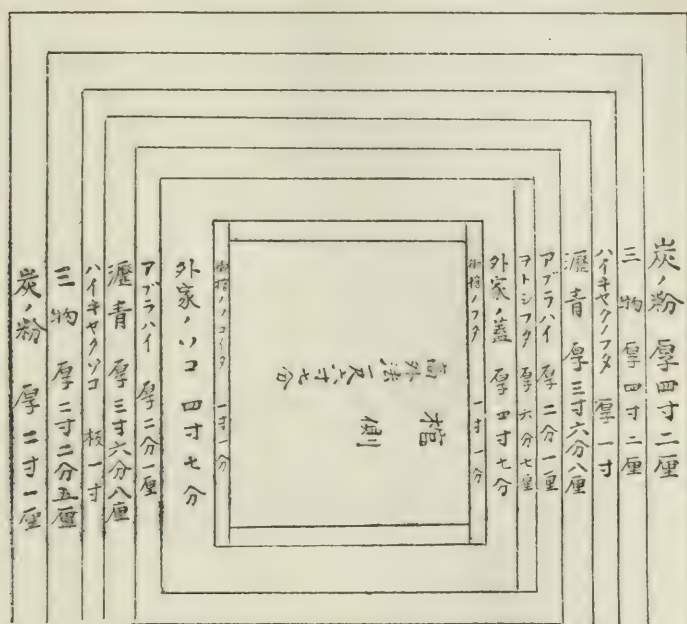 炭ノ粉 厚四寸二厘
三物 厚四寸二厘
ハイキヤクノフタ 厚一寸
瀝青 厚三寸六分八厘
アブラハイ 厚二分一厘
ヲトシフタ 厚六分七厘
外家ノ蓋 厚四寸七分
棺ノフタ 一寸一分
棺側
高外法一尺六寸七分
一寸一分
外家ノソコ 四寸七分
アブラハイ 厚二分一厘
瀝青 厚三寸六分八厘
ハイキヤクゾコ 板一寸
三物 厚二寸二分五厘
炭ノ粉 厚二寸一厘